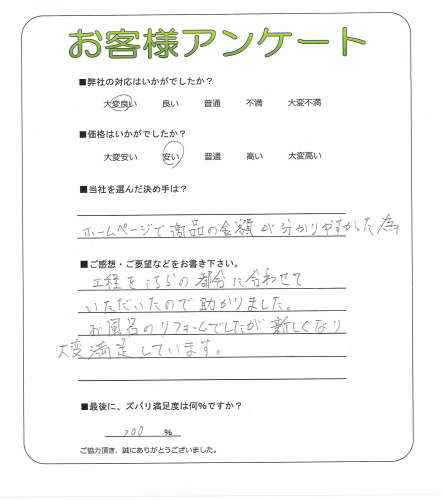 お客様アンケート
■弊社の対応はいかがでしたか？
大変良い 良い 普通 不満 大変不満
■価格はいかがでしたか？
大変安い 安い 普通 高い 大変高い
■当社を選んだ決め手は？
ホームページで商品の金額が分かりやすかした為
■ご感想・ご要望などをお書き下さい。
工程をこちらの都合に合わせて
いただいたので助かりました。
お風呂のリフォームでしたが新しくなり
大変満足しています。
■最後に、ズバリ満足度は何%ですか？
200 %
ご協力頂き、誠にありがとうございました。